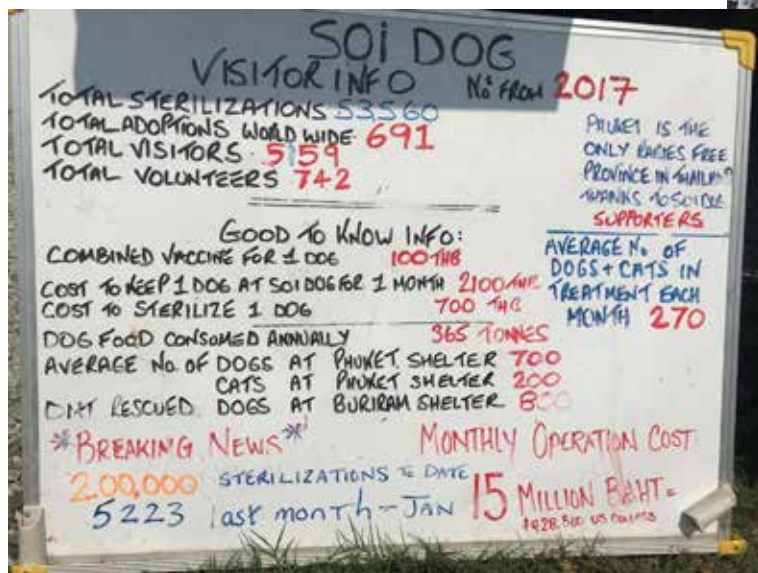 SOI DOG
VISITOR INFO
No FROM 2017
TOTAL STERILIZATIONS 53,560
TOTAL ADOPTIONS WORLD WIDE 691
TOTAL VISITORS 5159
TOTAL VOLUNTEERS 742
PHUKET IS THE
ONLY RABIES FREE
PROVINCE IN
THANKS TO SOI DOG
SUPPORTERS
GOOD TO KNOW INFO:
COMBINED VACCINE FOR 1 DOG 100 THB
COST TO KEEP 1 DOG AT SOI DOG FOR 1 MONTH 2100 THB
COST TO STERILIZE 1 DOG 700 THB
AVERAGE No. OF
DOGS + CATS IN
TREATMENT EACH
MONTH 270
DOG FOOD CONSUMED ANNUALLY 365 TONNES
AVERAGE No. OF DOGS AT PHUKET SHELTER 700
CATS AT PHUKET SHELTER 200
RESCUED DOGS AT BURIRAM SHELTER 800
*BREAKING NEWS*
200,000 STERILIZATIONS TO DATE
5223 last month - JAN
MONTHLY OPERATION COST
15 MILLION BAHT =
$428,500 US